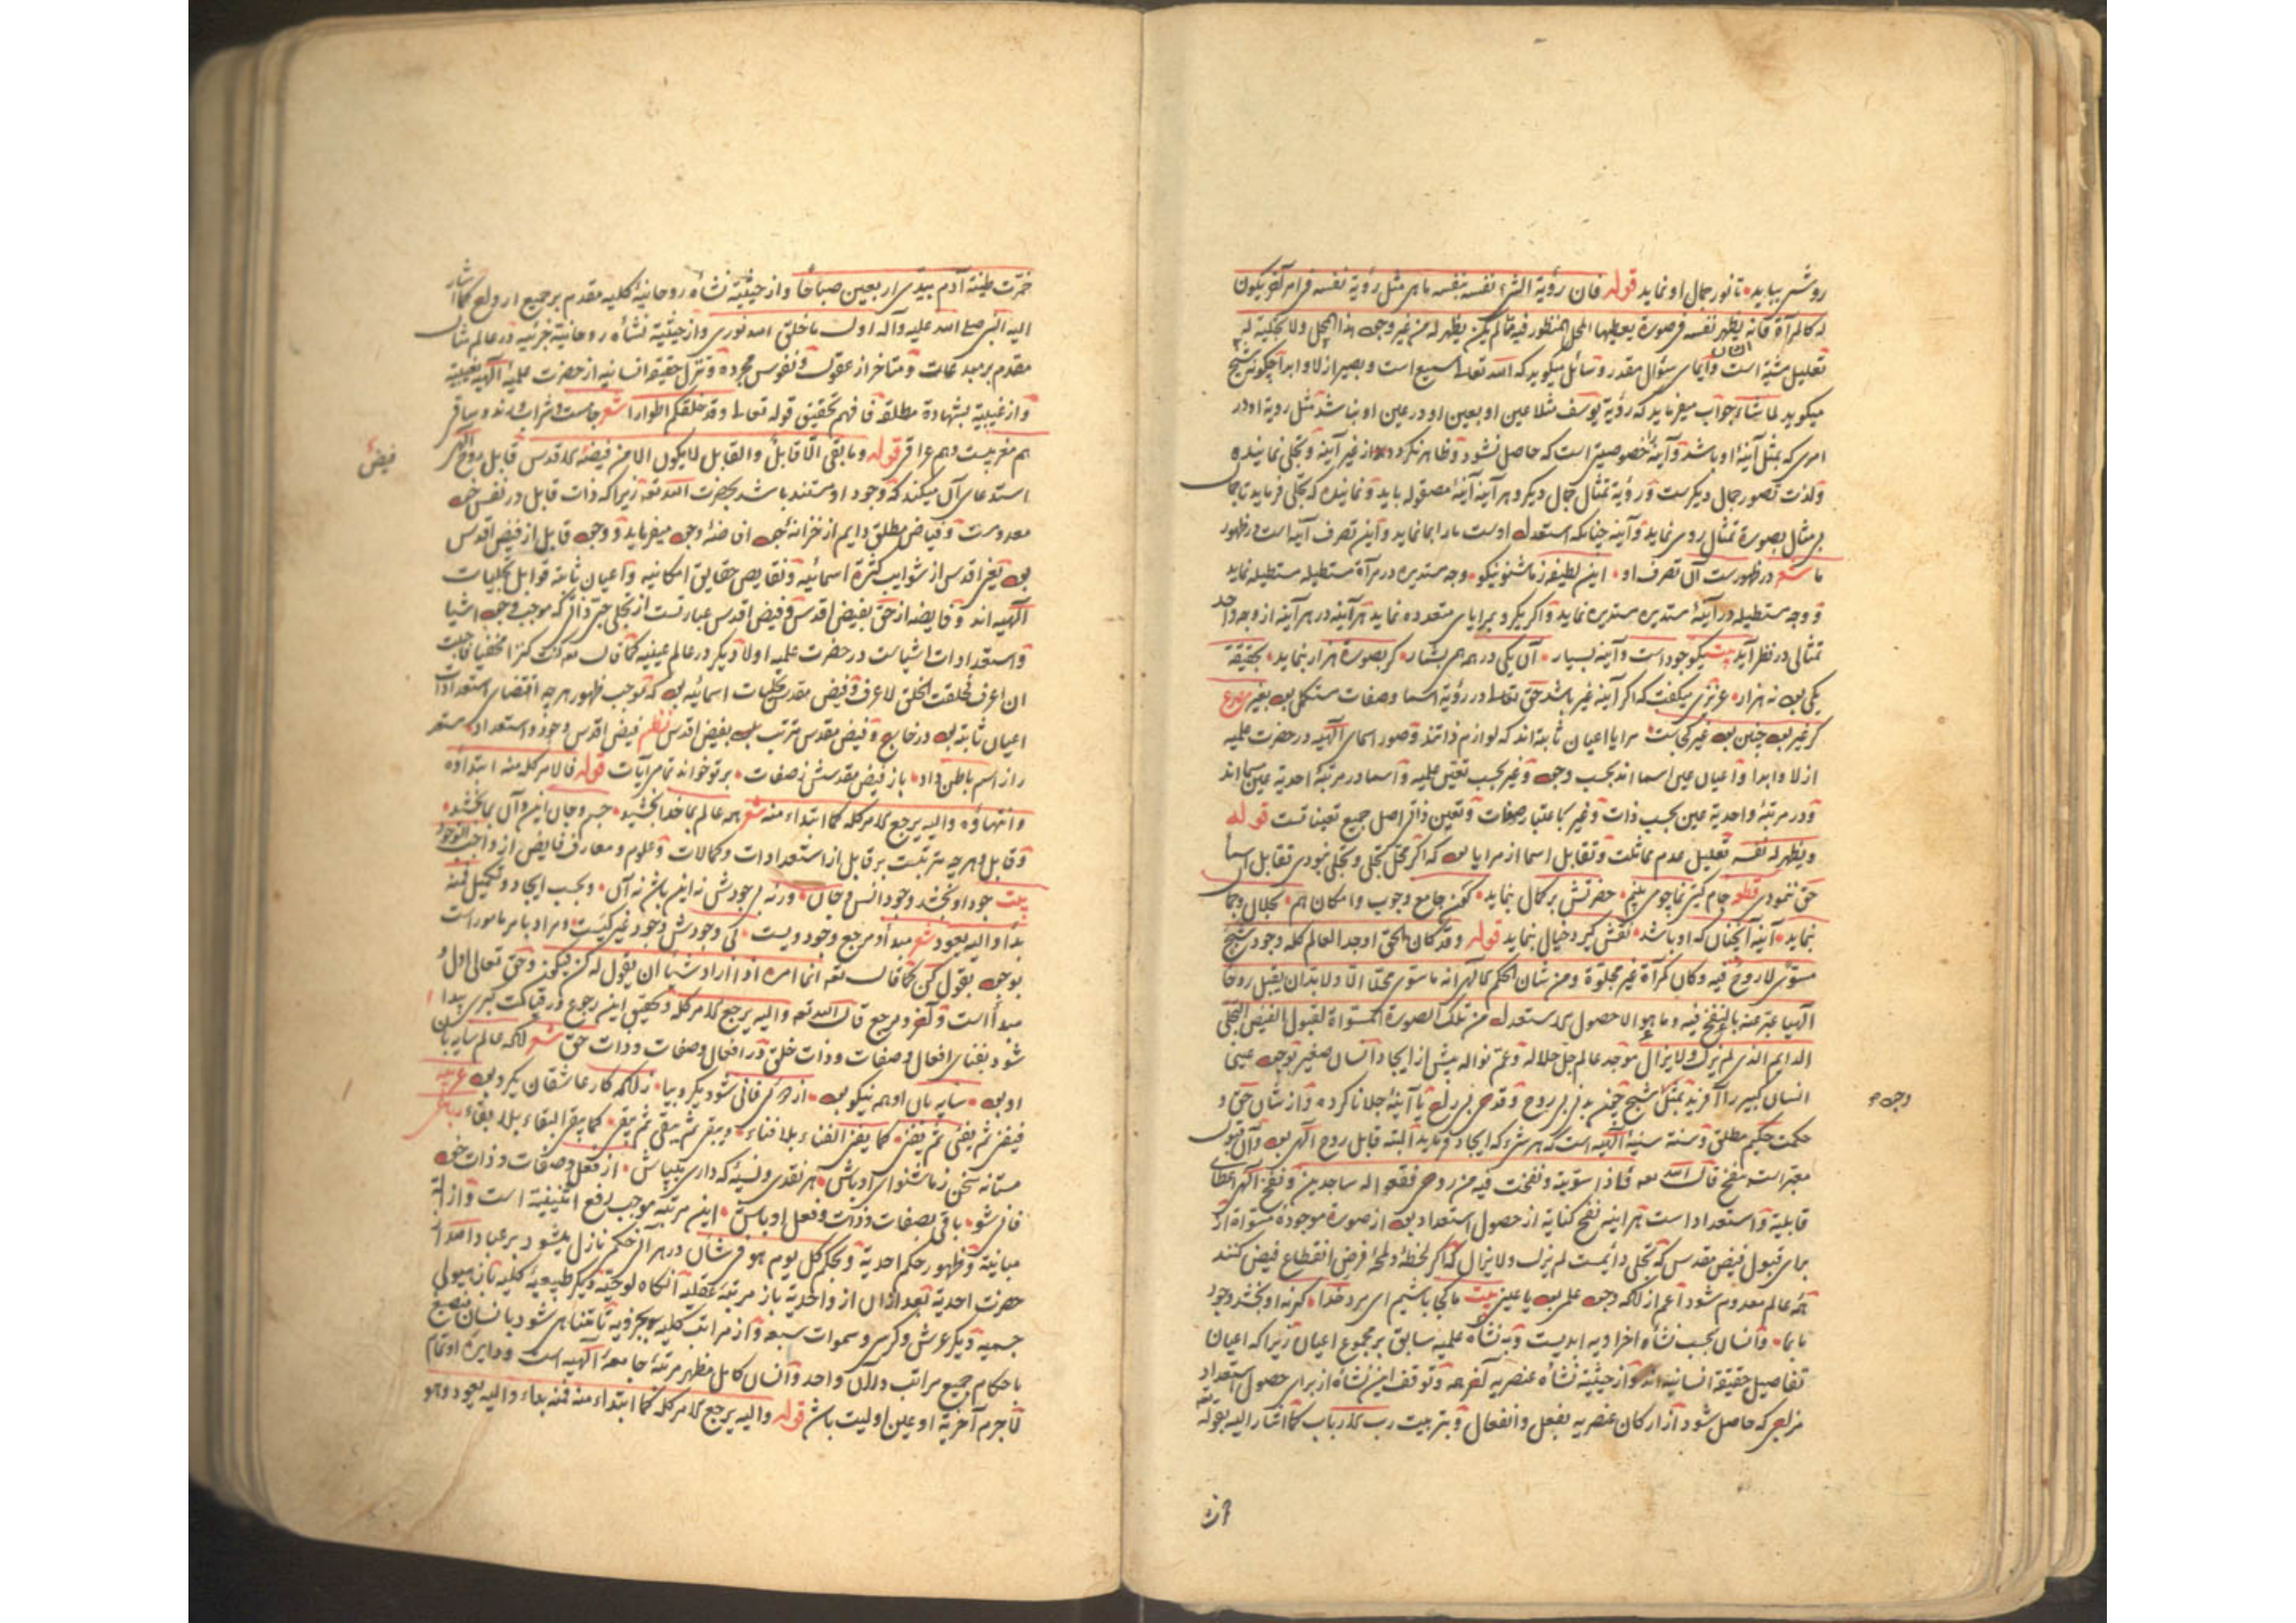 روشنی بیاید تا نور جمال او نماید قوله فان رؤیة الشیء نفسه بنفسه ما هی مثل رؤیة نفسه فی امر آخر یکون
له کالمرآة فانه یظهر له نفسه فی صورة یعطیها المحل المنظور فیه مما لم یکن یظهر له من غیر وجود هذا المحل ولا تجلیه له
تعلیل مشیة است و ایمای سؤال مقدر و سائل میگوید که الله تعالی سمیع است و بصیر ازلا و ابدا چگونه شیخ
میگوید لما شاء جواب میفرماید که رؤیة یوسف مثلا عین او بعین او در عین او نباشد مثل رویة او در
امری که بمثل آینهٔ او باشد و آینه را خصوصیتی است که حاصل نشود و ظاهر نگردد از غیر آینه و تجلی نماینده
ولذت تصور جمال دیگرست و رؤیة تمثال جمال دیگر و هر آینه آینهٔ مصقوله باید و نماینده که تجلی فرماید تا جمال
بی مثال بصورة تمثال روی نماید و آینه چنانکه استعداد اوست ما را بما نماید و این تصرف آینه است در ظهور
ما شعر در ظهورست آن تصرف او این لطیفه ز ما شنو نیکو وجه مستدیره در مرآة مستطیله مستطیله نماید
و وجه مستطیله در آینهٔ مستدیره مستدیره نماید و اگر یکرو بمرایای متعدده نماید هر آینه در هر آینه از وجه واحد
تمثالی در نظر آید بیت یک وجودست و آینه بسیار آن یکی در همه همی بشمار گر بصورة هزار بنماید بحقیقة
یکی بود نه هزار عزیزی میگفت که اگر آینه غیر باشد حق تعالی در رؤیة اسما و صفات مستکمل بود بغیر مصرع
گر غیر بود چنین بود غیر کجاست مرایا اعیان ثابته‌اند که لوازم ذاتند و صور اسمای الهیه در حضرت علمیه
ازلا و ابدا و اعیان عین اسما اند بحسب وجود و غیر بحسب تعین علمیه و اسما در مرتبهٔ احدیة عین مسما اند
و در مرتبهٔ واحدیة عین بحسب ذات و غیر باعتبار صفات و تعین ذاتی اصل جمیع تعینات تست قوله
ویظهر له نفسه تعلیل عدم مماثلت و تقابل اسما از مرایا بود که اگر محل تجلی و تجلی نبودی تقابل اسما
حق ننمودی قطعه جام گیتی نما چو می بینم حضرتش بر کمال بنماید کون جامع وجوب و امکان هم بجلال و جمال
بنماید آینه آنچنان که او باشد نقش گیرد خیال بنماید قوله وقد کان الحق اوجد العالم کله وجود شبح
مسوّی لا روح فیه وکان کمرآة غیر مجلوة ومن شان الحکم الالهی انه ما سوی محلا الا ولا بد ان یقبل روحا
الهیا عبّر عنه بالنفخ فیه وما هو الا حصول الاستعداد من تلک الصورة المسواة لقبول الفیض التجلی
الدایم الذی لم یزل ولا یزال موجد عالم جل جلاله وعم نواله پیش از ایجاد انسان صغیر بوجود عینی
انسان کبیر را آفرید بمثل شبح چون بدنی بی روح و قدحی بی راح یا آینهٔ جلا ناکرده و از شان حق و
حکمت حکیم مطلق و سنت سنیهٔ الهیه است که هر شیء که ایجاد فرماید البته قابل روح الهی بود و آن قبول
معبر است بنفخ قال الله تعه فاذا سویته ونفخت فیه من روحی فقعوا له ساجدین و نفخ الهی اعطای
قابلیة و استعداد است هر اینه نفخ کنایة از حصول استعداد بود از صورة موجوده مسواة از
برای قبول فیض مقدس که تجلی دائمیست لم یزل ولا یزال که اگر لحظهٔ و لمحهٔ فرض انقطاع فیض کنند
همه عالم معدوم شود اعم از آنکه وجود علمی بود یا عینی بیت ما کی باشیم ای برد خدا گر نه او بخشد وجود
ما بما و انسان بحسب نشأهٔ اخراویه ابدیست و به نشأهٔ علمیه سابق بر مجموع اعیان زیرا که اعیان
تفاصیل حقیقة انسانیه‌اند و از حیثیة نشأهٔ عنصریه آخر همه و توقف این نشأه از برای حصول استعداد
مزاجی که حاصل شود از ارکان عنصریه بفعل و انفعال و بتربیت رب الارباب کما اشار الیه بقوله
وجود
خمّرت طینة آدم بیدی اربعین صباحا و از حیثیة نشأهٔ روحانیهٔ کلیه مقدم بر جمیع ارواح کما اشار
الیه النبی صلی الله علیه وآله اول ما خلق الله نوری و از حیثیة نشأهٔ روحانیة جزئیه در عالم مثال
مقدم بر مبدعات و متاخر از عقول و نفوس مجرده و تنزل حقیقة انسانیه از حضرت علمیهٔ الهیه غیبیه
و از غیبیة بشهادة مطلقه فافهم تحقیق قوله تعالی وقد خلقکم اطوارا شعر جامست و شراب و رند و ساقی
هم مغربیست و هم عراقی قوله وما بقی الا قابل والقابل لا یکون الا من فیضه الاقدس قابل روح الهی
فیض
استدعای آن میکند که وجود او مستند باشد بحضرت الله تعه زیرا که ذات قابل در نفس خود
معدومست و فیاض مطلق دایم از خزانهٔ جود افاضهٔ وجود میفرماید و وجود قابل از فیض اقدس
بود یعنی اقدس از شوایب کثرة اسمائیه و نقایص حقایق امکانیه و اعیان ثابته قوابل تجلیات
الهیه‌اند و فایضه از حق بفیض اقدس و فیض اقدس عبارتست از تجلی حبی ذاتی که موجب وجود اشیا
و استعدادات اشیاست در حضرت علمیه اولا و دیگر در عالم عینیه کما قال تعه کنت کنزا مخفیا فاحببت
ان اعرف فخلقت الخلق لاعرف و فیض مقدس تجلیات اسمائیه بود که موجب ظهور هر چه اقتضای استعدادات
اعیان ثابته بود در خارج و فیض مقدس مترتب بود بفیض اقدس نظم فیض اقدس وجود و استعداد
را از اسم باطن داد باز فیض مقدسش ز صفات بر تو خواند تمام آیات قوله فالامر کله منه ابتداؤه
وانتهاؤه والیه یرجع الامر کله کما ابتداء منه شعر همه عالم بما خدا بخشید جسم و جان این و آن بما بخشد
و قابل و هر چه مترتبست بر قابل از استعدادات و کمالات و علوم و معارف فایض از واجب الوجود
بیت جود او بخشد وجود انس و جان ورنه بی جودش نه این باشد نه آن و بحسب ایجاد و تکمیل فمنه
بدأ والیه یعود شعر مبدأ و مرجع وجود ویست کی وجودش وجود غیر کیست و مراد بامر ماموراست
بوجود بقول کن کما قال تعه انما امره اذا اراد شیئا ان یقول له کن فیکون و حق تعالی اول و
مبدأ است و آخر و مرجع قال الله تعه والیه یرجع الامر کله و تحقیق این رجوع در قیامت کبری پیدا
شود بفنای افعال و صفات و ذات خلق در افعال و صفات و ذات حق شعر آنکه عالم سایه‌بان
او بود سایه بان او همه نیکو بود از همه فانی شود یکرو بیا زانکه کار عاشقان یکرو بود عربیه
فیفنی ثم یفنی ثم یفنی کما یفنی الفناء بلا فناء ویبقی ثم یبقی ثم یبقی کما یبقی البقاء بلا بقاء رباعی
مستانه سخن ز ما شنو ای اوباش هر نقدی و نسیهٔ که داری بپاش از فعل و صفات و ذات خود
فانی شو باقی بصفات و ذات و فعل او باش این مرتبه موجب رفع اثنینیة است و ازالهٔ
مباینة و ظهور حکم احدیة و بحکم کل یوم هو فی شان در هر آن حکم نازل میشود بر عباد الله از
حضرت احدیة بعد از آن از واحدیة باز مرتبهٔ عقلیه آنگاه لوحیة و دیگر طبیعیهٔ کلیه باز هیولی
جسمیه دیگر عرش و کرسی و سموات سبعه و از مراتب کلیه بجزویه تا متناهی شود بانسان منصبغ
باحکام جمیع مراتب در آن واحد و انسان کامل مظهر مرتبهٔ جامعهٔ الهیه است و دایرهٔ او تمام
لاجرم آخریة او عین اولیت باشد قوله والیه یرجع الامر کله کما ابتداء منه فمنه بداء والیه یعود وهو